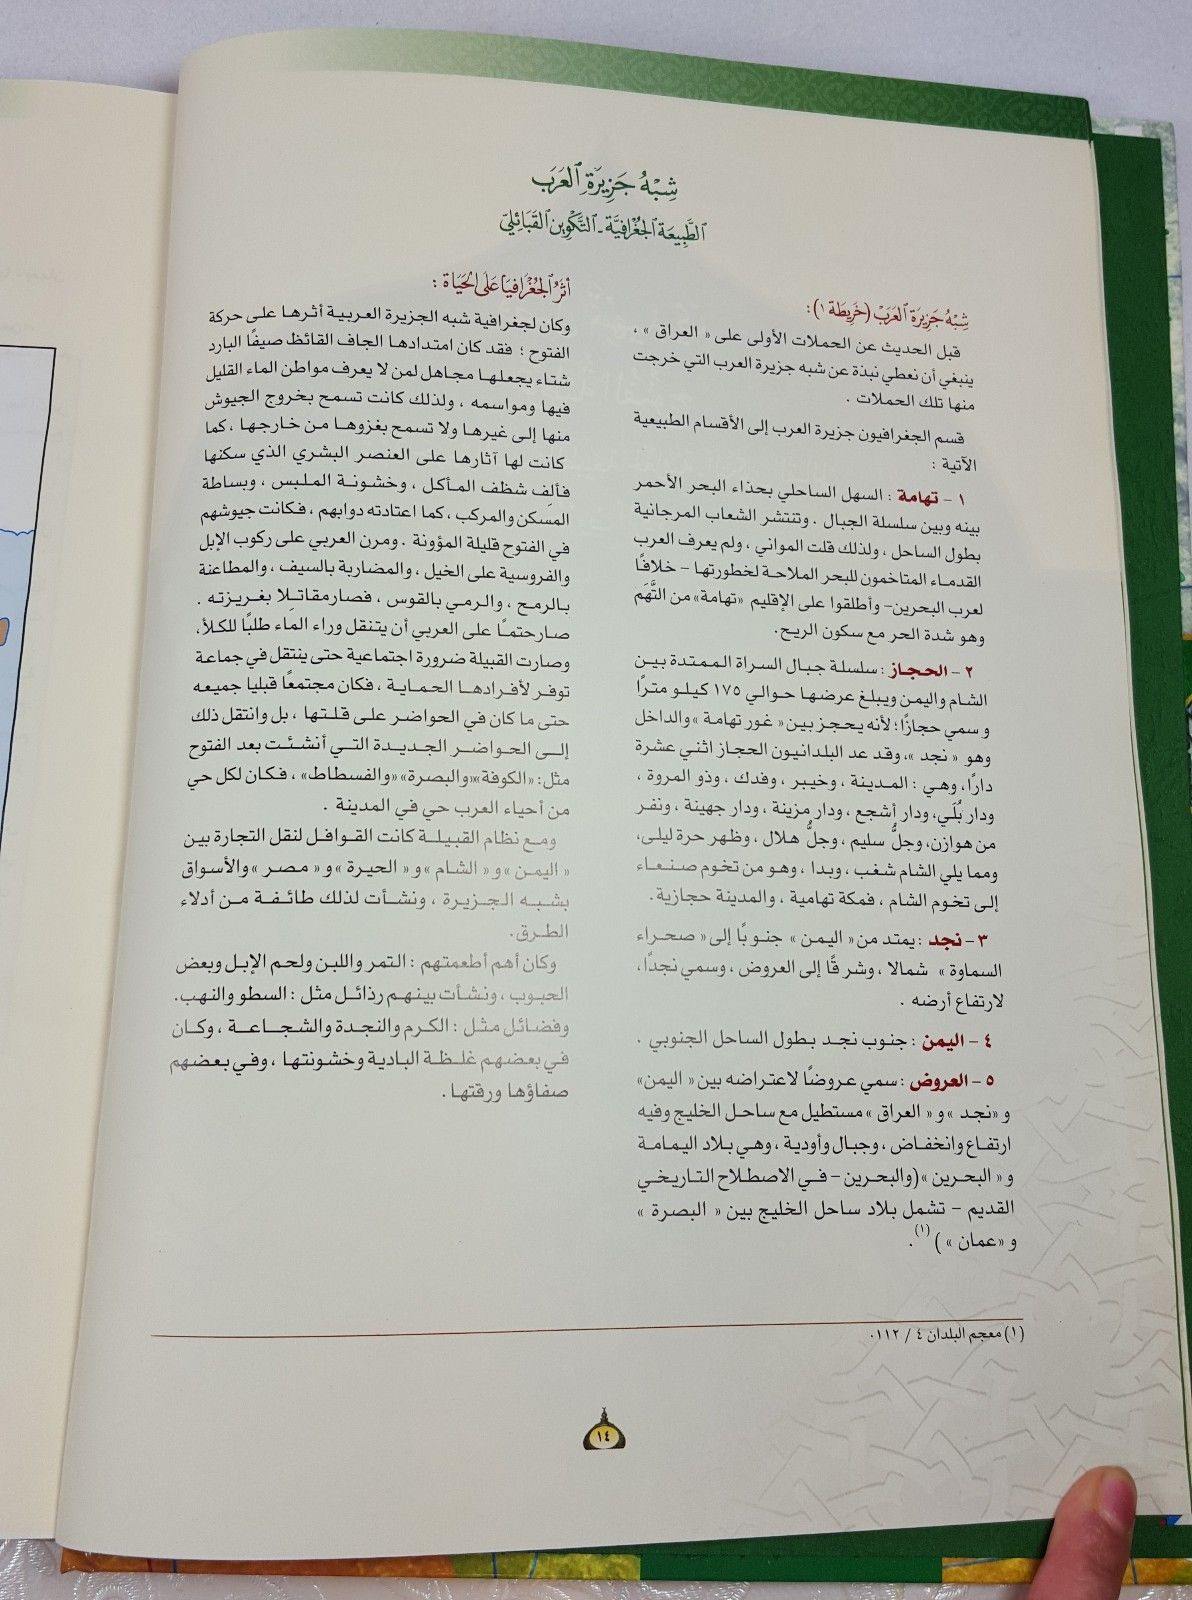 شِبْهُ جَزِيرَةِ ٱلعَرَبِ
ٱلطَّبِيعَة ٱلجُغْرَافِيَّة - ٱلتَّكْوِين ٱلقَبَائِلِيّ
شِبْهُ جَزِيرَة ٱلعَرَبْ (خَرِيطَة ١) :
قبل الحديث عن الحملات الأولى على « العراق » ،
ينبغي أن نعطي نبذة عن شبه جزيرة العرب التي خرجت
منها تلك الحملات .
قسم الجغرافيون جزيرة العرب إلى الأقسام الطبيعية
الآتية :
١ - تهامة : السهل الساحلي بحذاء البحر الأحمر
بينه وبين سلسلة الجبال . وتنتشر الشعاب المرجانية
بطول الساحل ، ولذلك قلت المواني ، ولم يعرف العرب
القدماء المتاخمون للبحر الملاحة لخطورتها - خلافًا
لعرب البحرين - وأطلقوا على الإقليم «تهامة» من التَّهَم
وهو شدة الحر مع سكون الريح.
٢ - الحجاز : سلسلة جبال السراة الممتدة بين
الشام واليمن ويبلغ عرضها حوالي ١٧٥ كيلو مترًا
و سمي حجازًا ؛ لأنه يحجز بين « غور تهامة » والداخل
وهو « نجد »، وقد عد البلدانيون الحجاز اثني عشرة
دارًا ، وهي : المدينة ، وخيبر ، وفدك ، وذو المروة ،
ودار بُلَي، ودار أشجع ، ودار مزينة ، ودار جهينة ، ونفر
من هوازن، وجلُّ سليم ، وجلُّ هلال ، وظهر حرة ليلى،
ومما يلي الشام شغب ، وبدا ، وهو من تخوم صنعاء
إلى تخوم الشام ، فمكة تهامية ، والمدينة حجازية .
٣ - نجد : يمتد من « اليمن » جنوبًا إلى « صحراء
السماوة » شمالا ، وشرقًا إلى العروض ، وسمي نجدًا ،
لارتفاع أرضه .
٤ - اليمن : جنوب نجد بطول الساحل الجنوبي .
٥ - العروض : سمي عروضًا لاعتراضه بين « اليمن»
و «نجد » و « العراق » مستطيل مع ساحل الخليج وفيه
ارتفاع وانخفاض ، وجبال وأودية ، وهي بلاد اليمامة
و « البحرين » (والبحرين - في الاصطلاح التاريخي
القديم - تشمل بلاد ساحل الخليج بين « البصرة »
و «عمان » ) (١).
أثَرُ ٱلجُغْرَافِيَا عَلَى ٱلحَيَاة :
وكان لجغرافية شبه الجزيرة العربية أثرها على حركة
الفتوح ؛ فقد كان امتدادها الجاف القائظ صيفًا البارد
شتاء يجعلها مجاهل لمن لا يعرف مواطن الماء القليل
فيها ومواسمه ، ولذلك كانت تسمح بخروج الجيوش
منها إلى غيرها ولا تسمح بغزوها من خارجها ، كما
كانت لها آثارها على العنصر البشري الذي سكنها
فألِف شظف المأكل ، وخشونة الملبس ، وبساطة
المسكن والمركب ، كما اعتادته دوابهم ، فكانت جيوشهم
في الفتوح قليلة المؤونة . ومرن العربي على ركوب الإبل
والفروسية على الخيل ، والمضاربة بالسيف ، والمطاعنة
بالرمح ، والرمي بالقوس ، فصار مقاتلًا بغريزته .
صار حتمًا على العربي أن يتنقل وراء الماء طلبًا للكلأ،
وصارت القبيلة ضرورة اجتماعية حتى ينتقل في جماعة
توفر لأفرادها الحماية ، فكان مجتمعًا قبليا جميعه
حتى ما كان في الحواضر على قلتها ، بل وانتقل ذلك
إلى الحواضر الجديدة التي أنشئت بعد الفتوح
مثل: «الكوفة»و«البصرة» و«الفسطاط» ، فكان لكل حي
من أحياء العرب حي في المدينة .
ومع نظام القبيلة كانت القوافل لنقل التجارة بين
« اليمن » و « الشام » و « الحيرة » و « مصر » والأسواق
بشبه الجزيرة ، ونشأت لذلك طائفة من أدلاء
الطرق.
وكان أهم أطعمتهم : التمر واللبن ولحم الإبل وبعض
الحبوب ، ونشأت بينهم رذائل مثل : السطو والنهب.
وفضائل مثل : الكرم والنجدة والشجاعة ، وكان
في بعضهم غلظة البادية وخشونتها ، وفي بعضهم
صفاؤها ورقتها .
(١) معجم البلدان ٤ / ١١٢٠
١٤